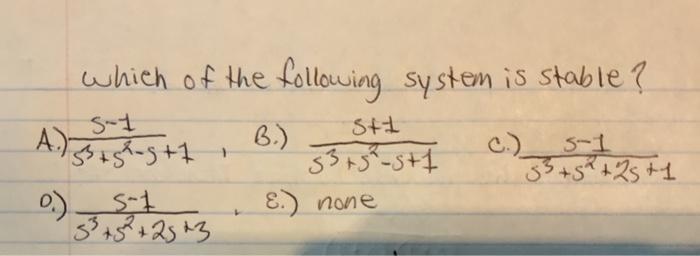 which of the following system is stable?
A.) s-1 / s³+s²-s+1 , B.) s+1 / s³+s²-s+1 C.) s-1 / s³+s²+2s+1
D.) s-1 / s³+s²+2s+3 . E.) none